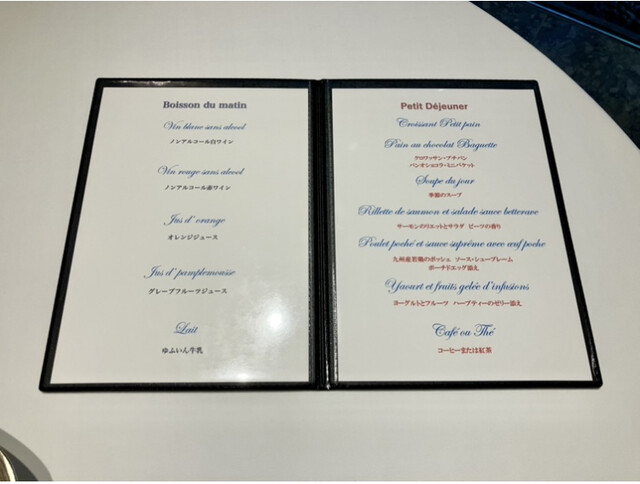 Boisson du matin
Vin blanc sans alcool
ノンアルコール白ワイン
Vin rouge sans alcool
ノンアルコール赤ワイン
Jus d'orange
オレンジジュース
Jus d'pamplemousse
グレープフルーツジュース
Lait
ゆふいん牛乳
Petit Déjeuner
Croissant Petit pain
Pain au chocolat Baguette
クロワッサン・プチパン
パンオショコラ・ミニバケット
Soupe du jour
季節のスープ
Rillette de saumon et salade sauce betterave
サーモンのリエットとサラダ ビーツの香り
Poulet poché et sauce suprême avec œuf poche
九州産若鶏のポッシェ ソース・シュープレーム
ポーチドエッグ添え
Yaourt et fruits gelée d'infusions
ヨーグルトとフルーツ ハーブティーのゼリー添え
Café ou Thé
コーヒーまたは紅茶